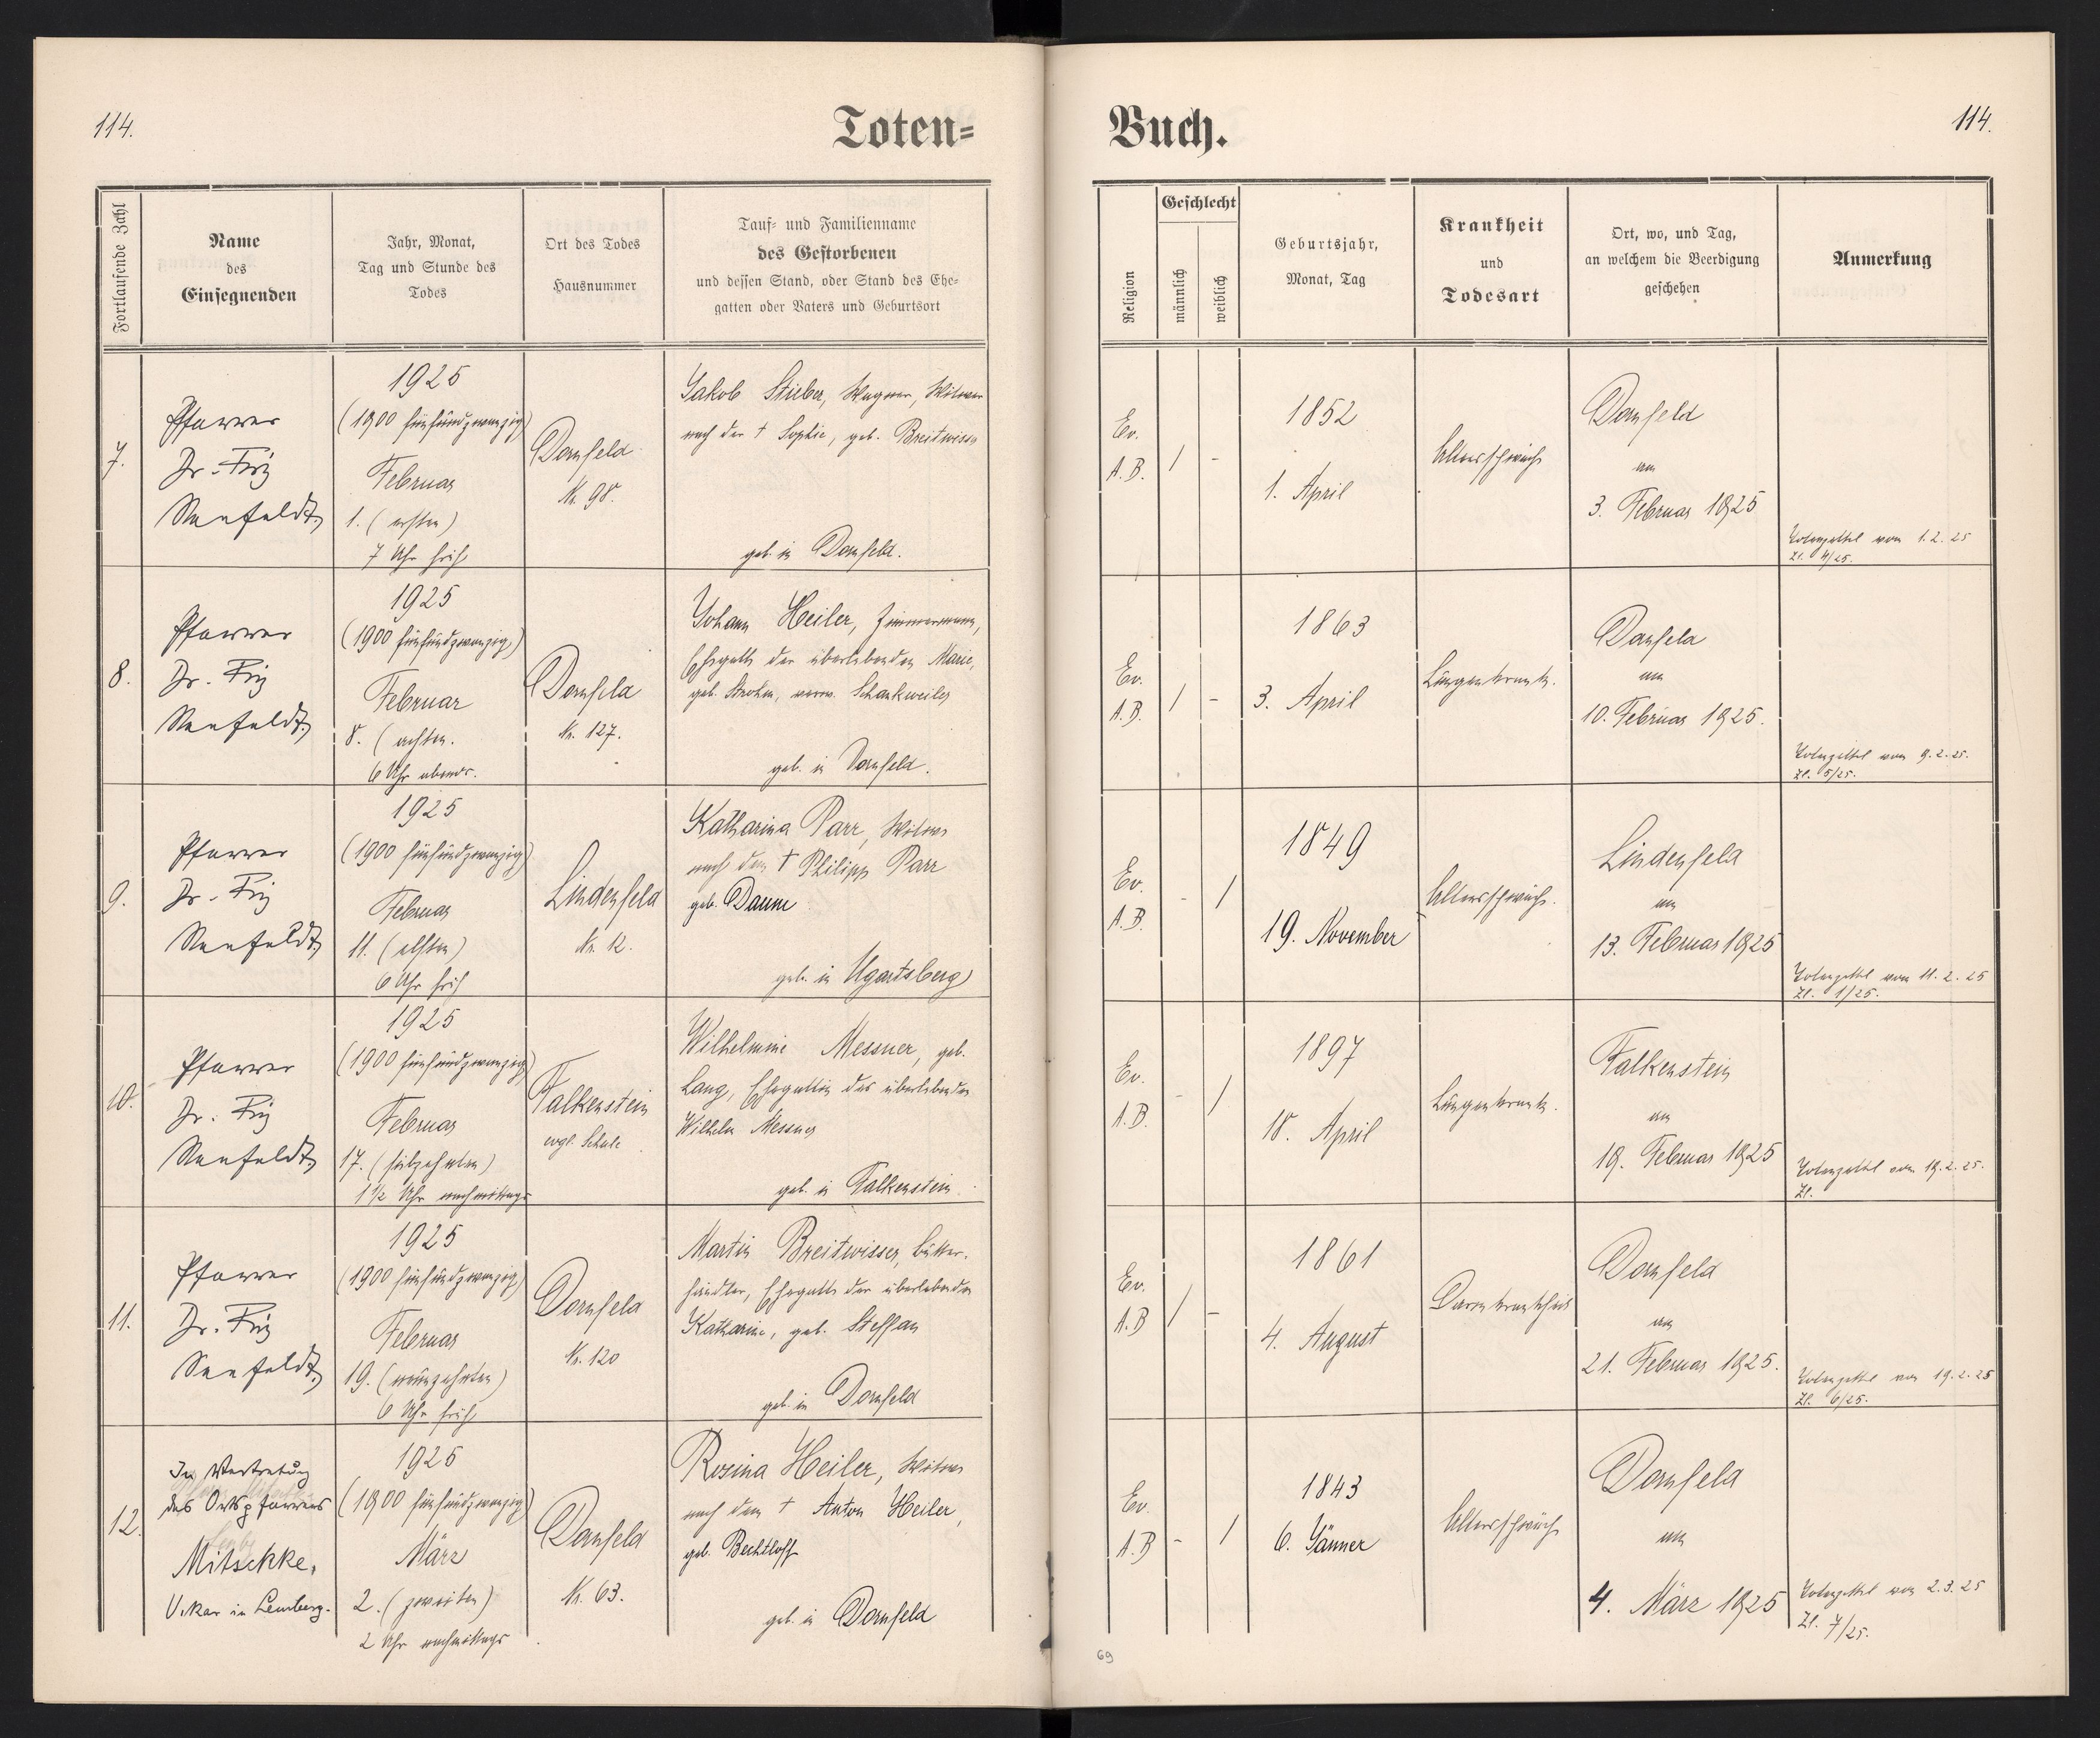 114.
Toten=
Buch.
114.
Fortlaufende Zahl
Name
des
Einsegnenden
Jahr, Monat,
Tag und Stunde des
Todes
Ort des Todes
Hausnummer
Tauf- und Familienname
des Gestorbenen
und dessen Stand, oder Stand des Ehe-
gatten oder Vaters und Geburtsort
Religion
Geschlecht
männlich
weiblich
Geburtsjahr,
Monat, Tag
Krankheit
und
Todesart
Ort, wo, und Tag,
an welchem die Beerdigung
geschehen
Anmerkung
7.
Pfarrer
Dr. Friz
Seefeldt
1925
(1900 fünfundzwanzig)
Februar
1. (ersten)
7 Uhr früh
Dornfeld
Nr. 98.
Jakob Stieber, Wagner, Witwer
nach der † Sophie, geb. Breitwieser
geb. in Dornfeld.
Ev.
A.B.
/
-
1852
1. April
Altersschwäche
Dornfeld
am
3. Februar 1925
Totenzettel vom 1.2.25
Zl. 4/25.
8.
Pfarrer
Dr. Friz
Seefeldt
1925
(1900 fünfundzwanzig)
Februar
8. (achten.
6 Uhr abends.
Dornfeld
Nr. 127.
Johann Heiler, Zimmermann,
Ehegatte der überlebenden Marie,
geb. Strohm, verw. Schankweiler
geb. in Dornfeld.
Ev.
A.B.
/
-
1863
3. April
Lungenkrank.
Dornfeld
am
10. Februar 1925.
Totenzettel vom 9.2.25.
Zl. 5/25.
9.
Pfarrer
Dr. Friz
Seefeldt
1925
(1900 fünfundzwanzig)
Februar
11. (elften)
6 Uhr früh
Lindenfeld
Nr. 12.
Katharina Parr, Witwe
nach dem † Philipp Parr
geb. Daum
geb. in Ugartsberg
Ev.
A.B.
-
/
1849
19. November
Altersschwäche.
Lindenfeld
am
13. Februar 1925
Totenzettel vom 11.2.25
Zl. 1/25.
10.
Pfarrer
Dr. Friz
Seefeldt
1925
(1900 fünfundzwanzig)
Februar
17. (siebzehnten)
1 1/2 Uhr nachmittags
Falkenstein
evgl. Schule
Wilhelmine Messner, geb.
Lang, Ehegattin des überlebenden
Wilhelm Messner
geb. in Falkenstein
Ev.
A.B.
-
/
1897
18. April
Lungenkrank.
Falkenstein
am
19. Februar 1925
Totenzettel vom 19.2.25.
Zl.
11.
Pfarrer
Dr. Friz
Seefeldt
1925
(1900 fünfundzwanzig)
Februar
19. (neunzehnten)
6 Uhr früh
Dornfeld
Nr. 120
Martin Breitwieser, Butter-
händler, Ehegatte der überlebenden
Katharine, geb. Steffan
geb. in Dornfeld
Ev.
A.B
/
-
1861
4. August
Darmkrankheit
Dornfeld
am
21. Februar 1925.
Totenzettel vom 19.2.25
Zl. 6/25.
12.
In Vertretung
des Ortspfarrers
Mitschke,
Vikar in Lemberg.
1925
(1900 fünfundzwanzig)
März
2. (zweiten)
2 Uhr nachmittags
Dornfeld
Nr. 63.
Rosina Heiler, Witwe
nach dem † Anton Heiler,
geb. Bechtloff
geb. in Dornfeld
Ev.
A.B
-
/
1843
6. Jänner
Altersschwäche
Dornfeld
am
4. März 1925
Totenzettel vom 2.3.25
Zl. 7/25.
69